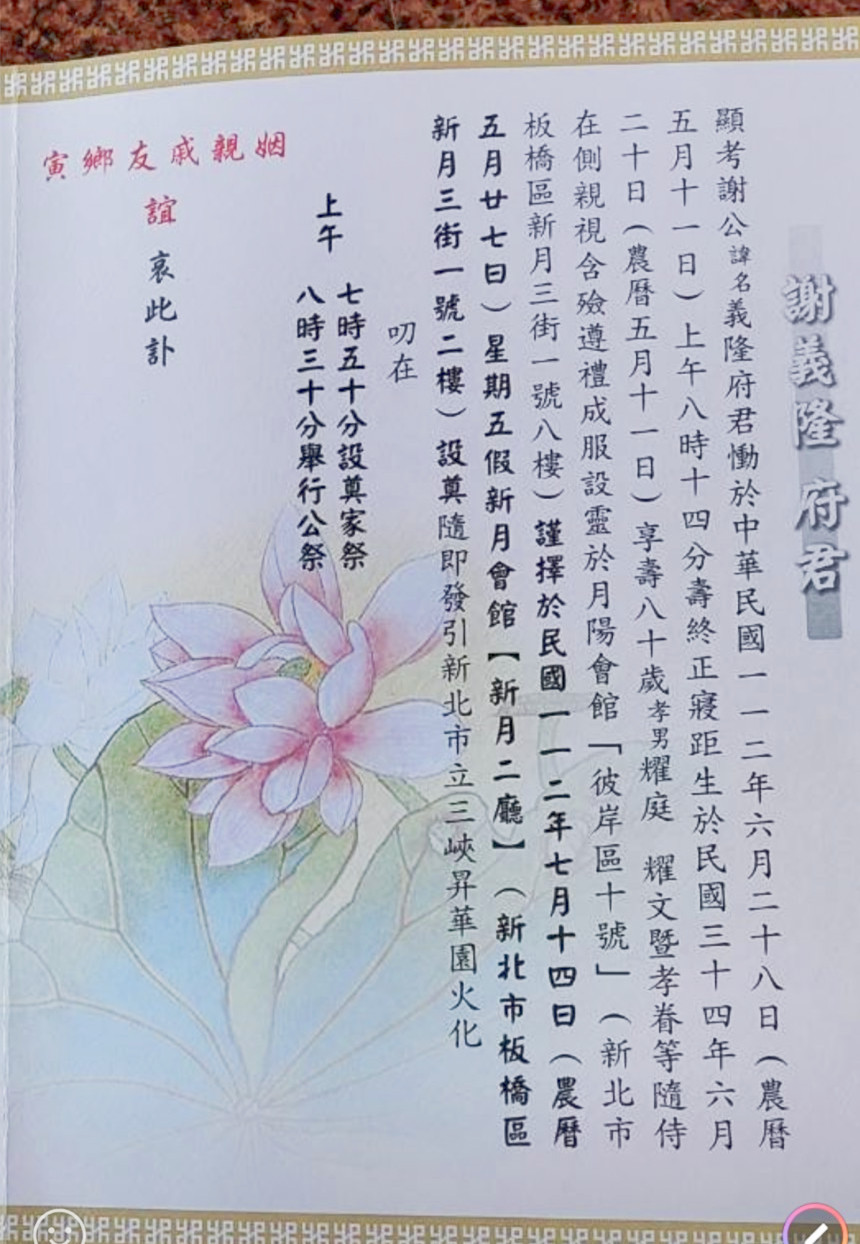 謝義隆 府君
顯考謝公諱名義隆府君慟於中華民國一一二年六月二十八日（農曆
五月十一日）上午八時十四分壽終正寢距生於民國三十四年六月
二十日（農曆五月十一日）享壽八十歲孝男耀庭 耀文暨孝眷等隨侍
在側親視含殮遵禮成服設靈於月陽會館「彼岸區十號」（新北市
板橋區新月三街一號八樓）謹擇於民國一一二年七月十四日（農曆
五月廿七日）星期五假新月會館【新月二廳】（新北市板橋區
新月三街一號二樓）設奠隨即發引新北市立三峽昇華園火化
叨在
上午
七時五十分設奠家祭
八時三十分舉行公祭
姻親戚友鄉寅
誼
哀此訃